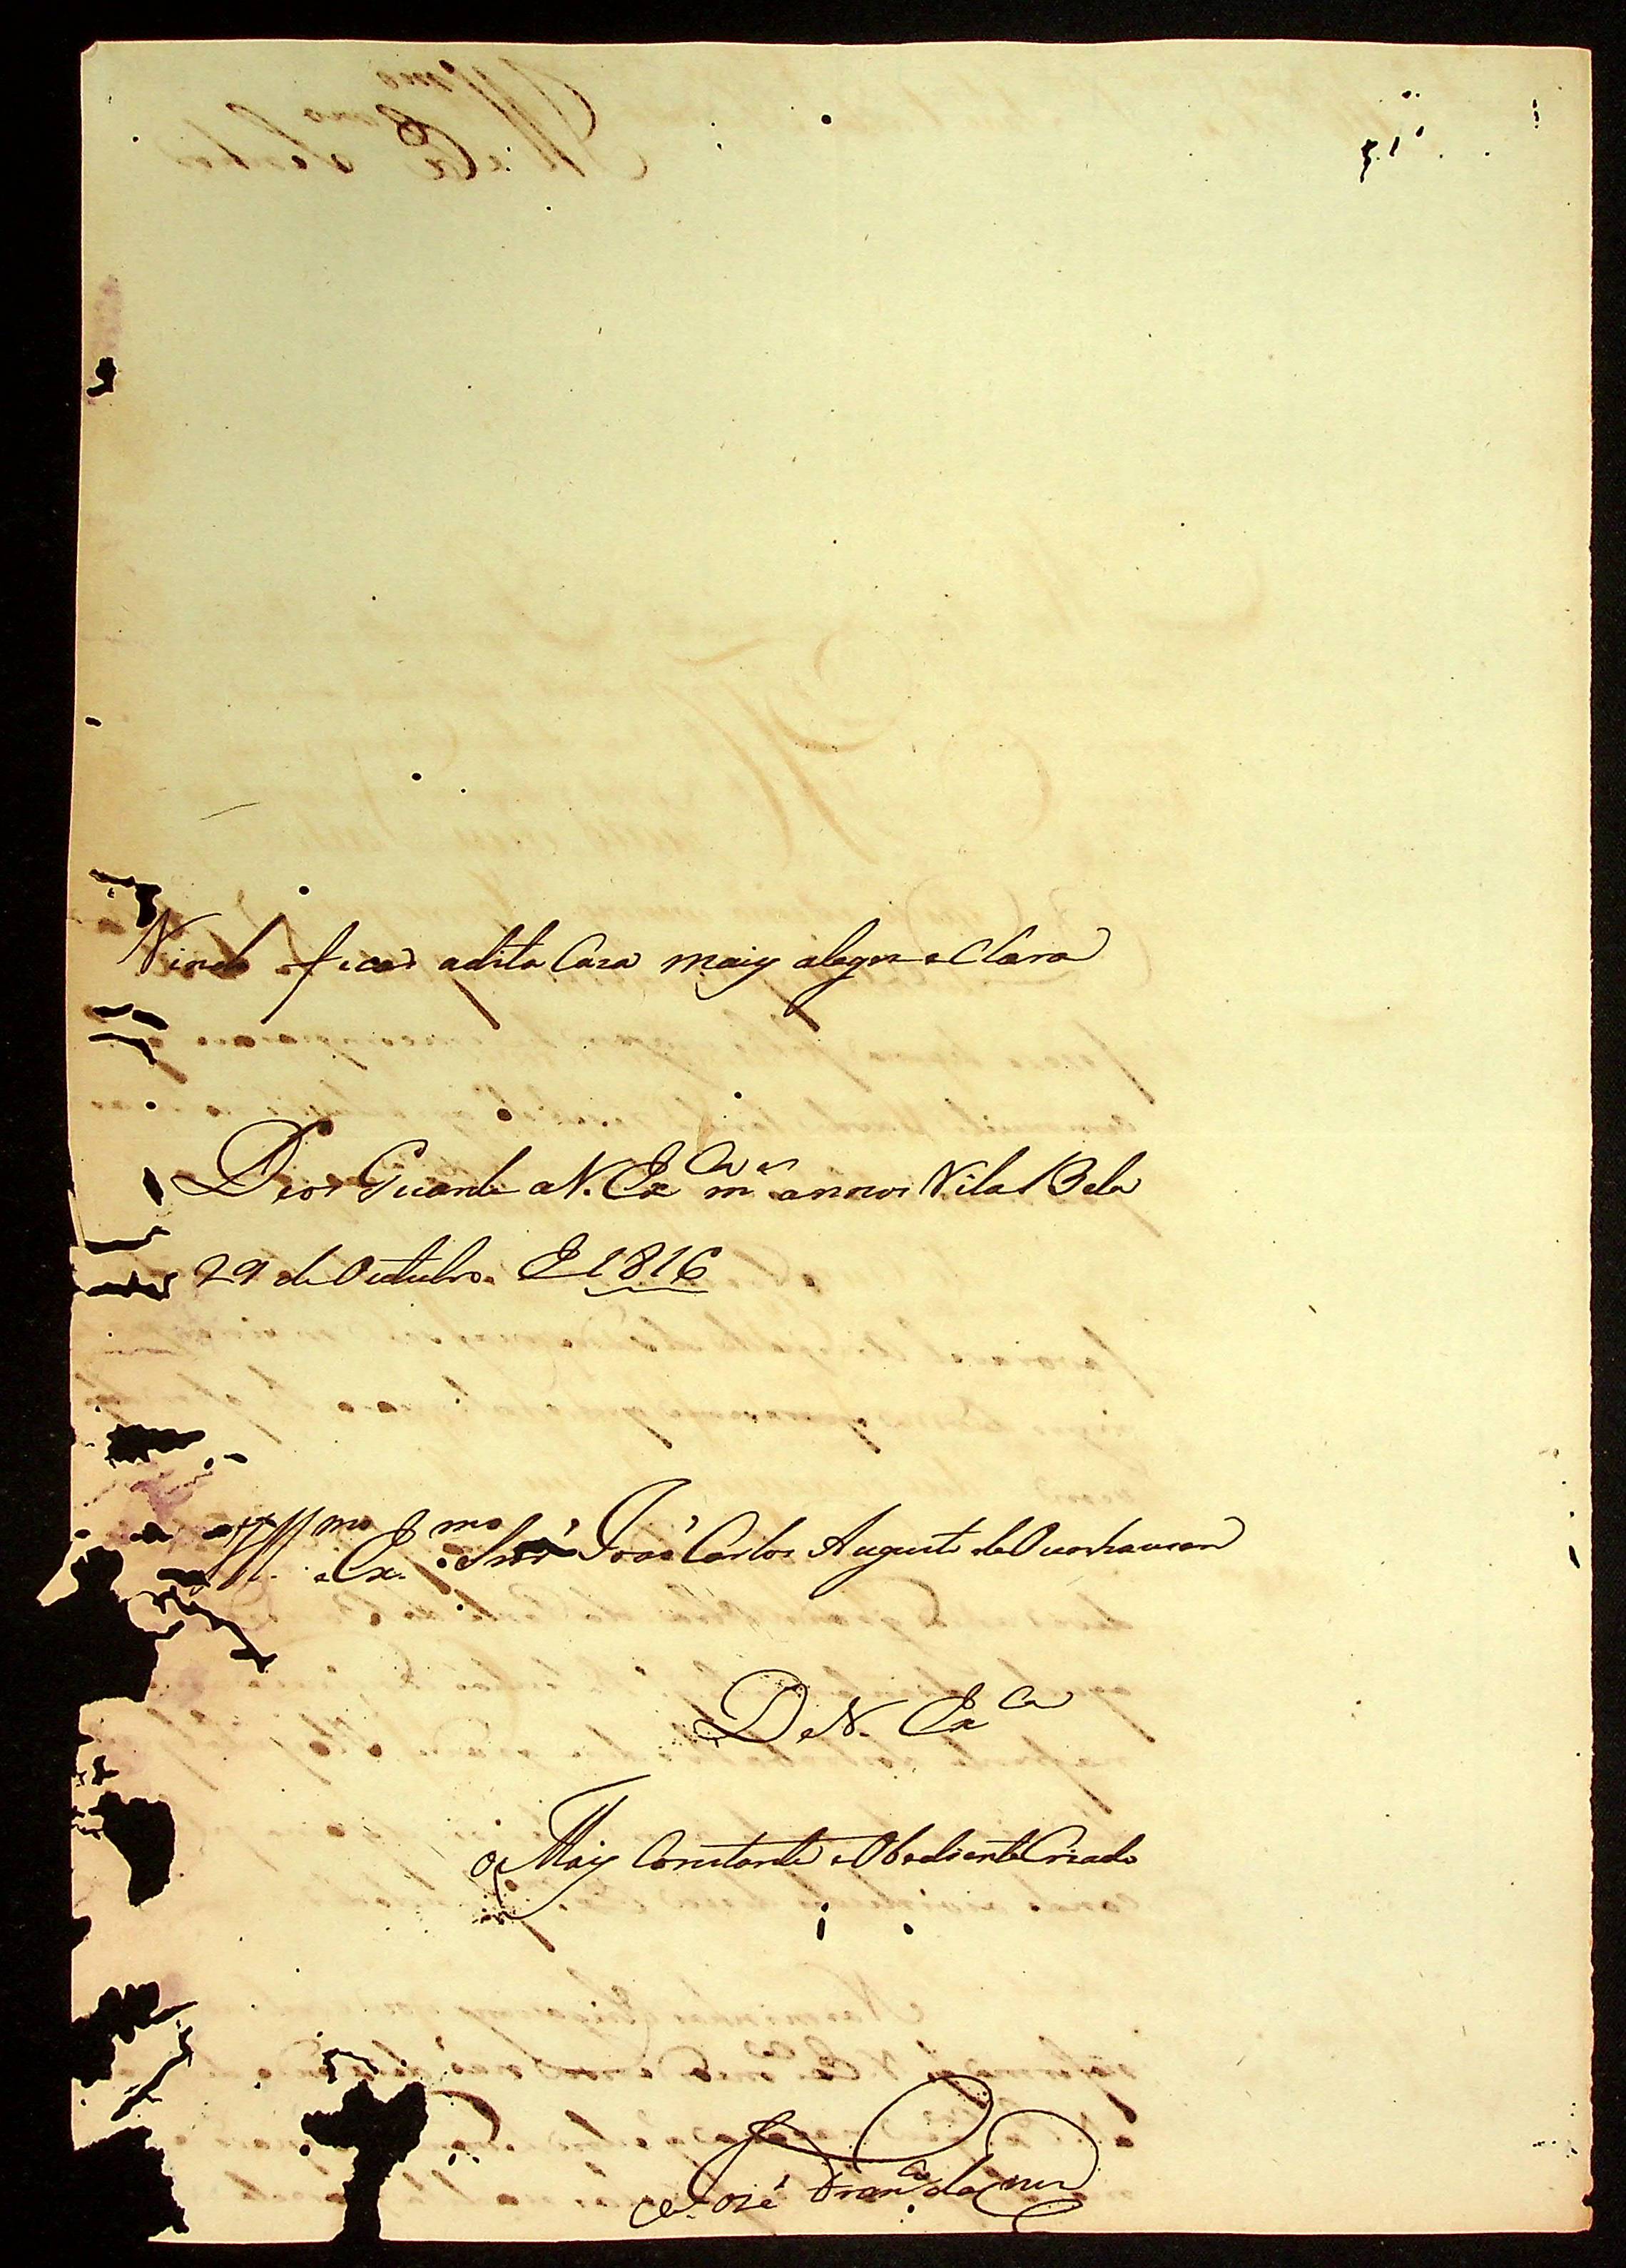 Vindo ficar adita Caza maiz alegre e Clara
Deos Guarde a V. Exca ms annos Vila Bela
29 de Outubro E 1816
Illmo e Exmo Snor João Carlos Augusto de Oeynhausen
De V. Exca
o Maiz Constante e Obediente Criado
José Franco da Cruz